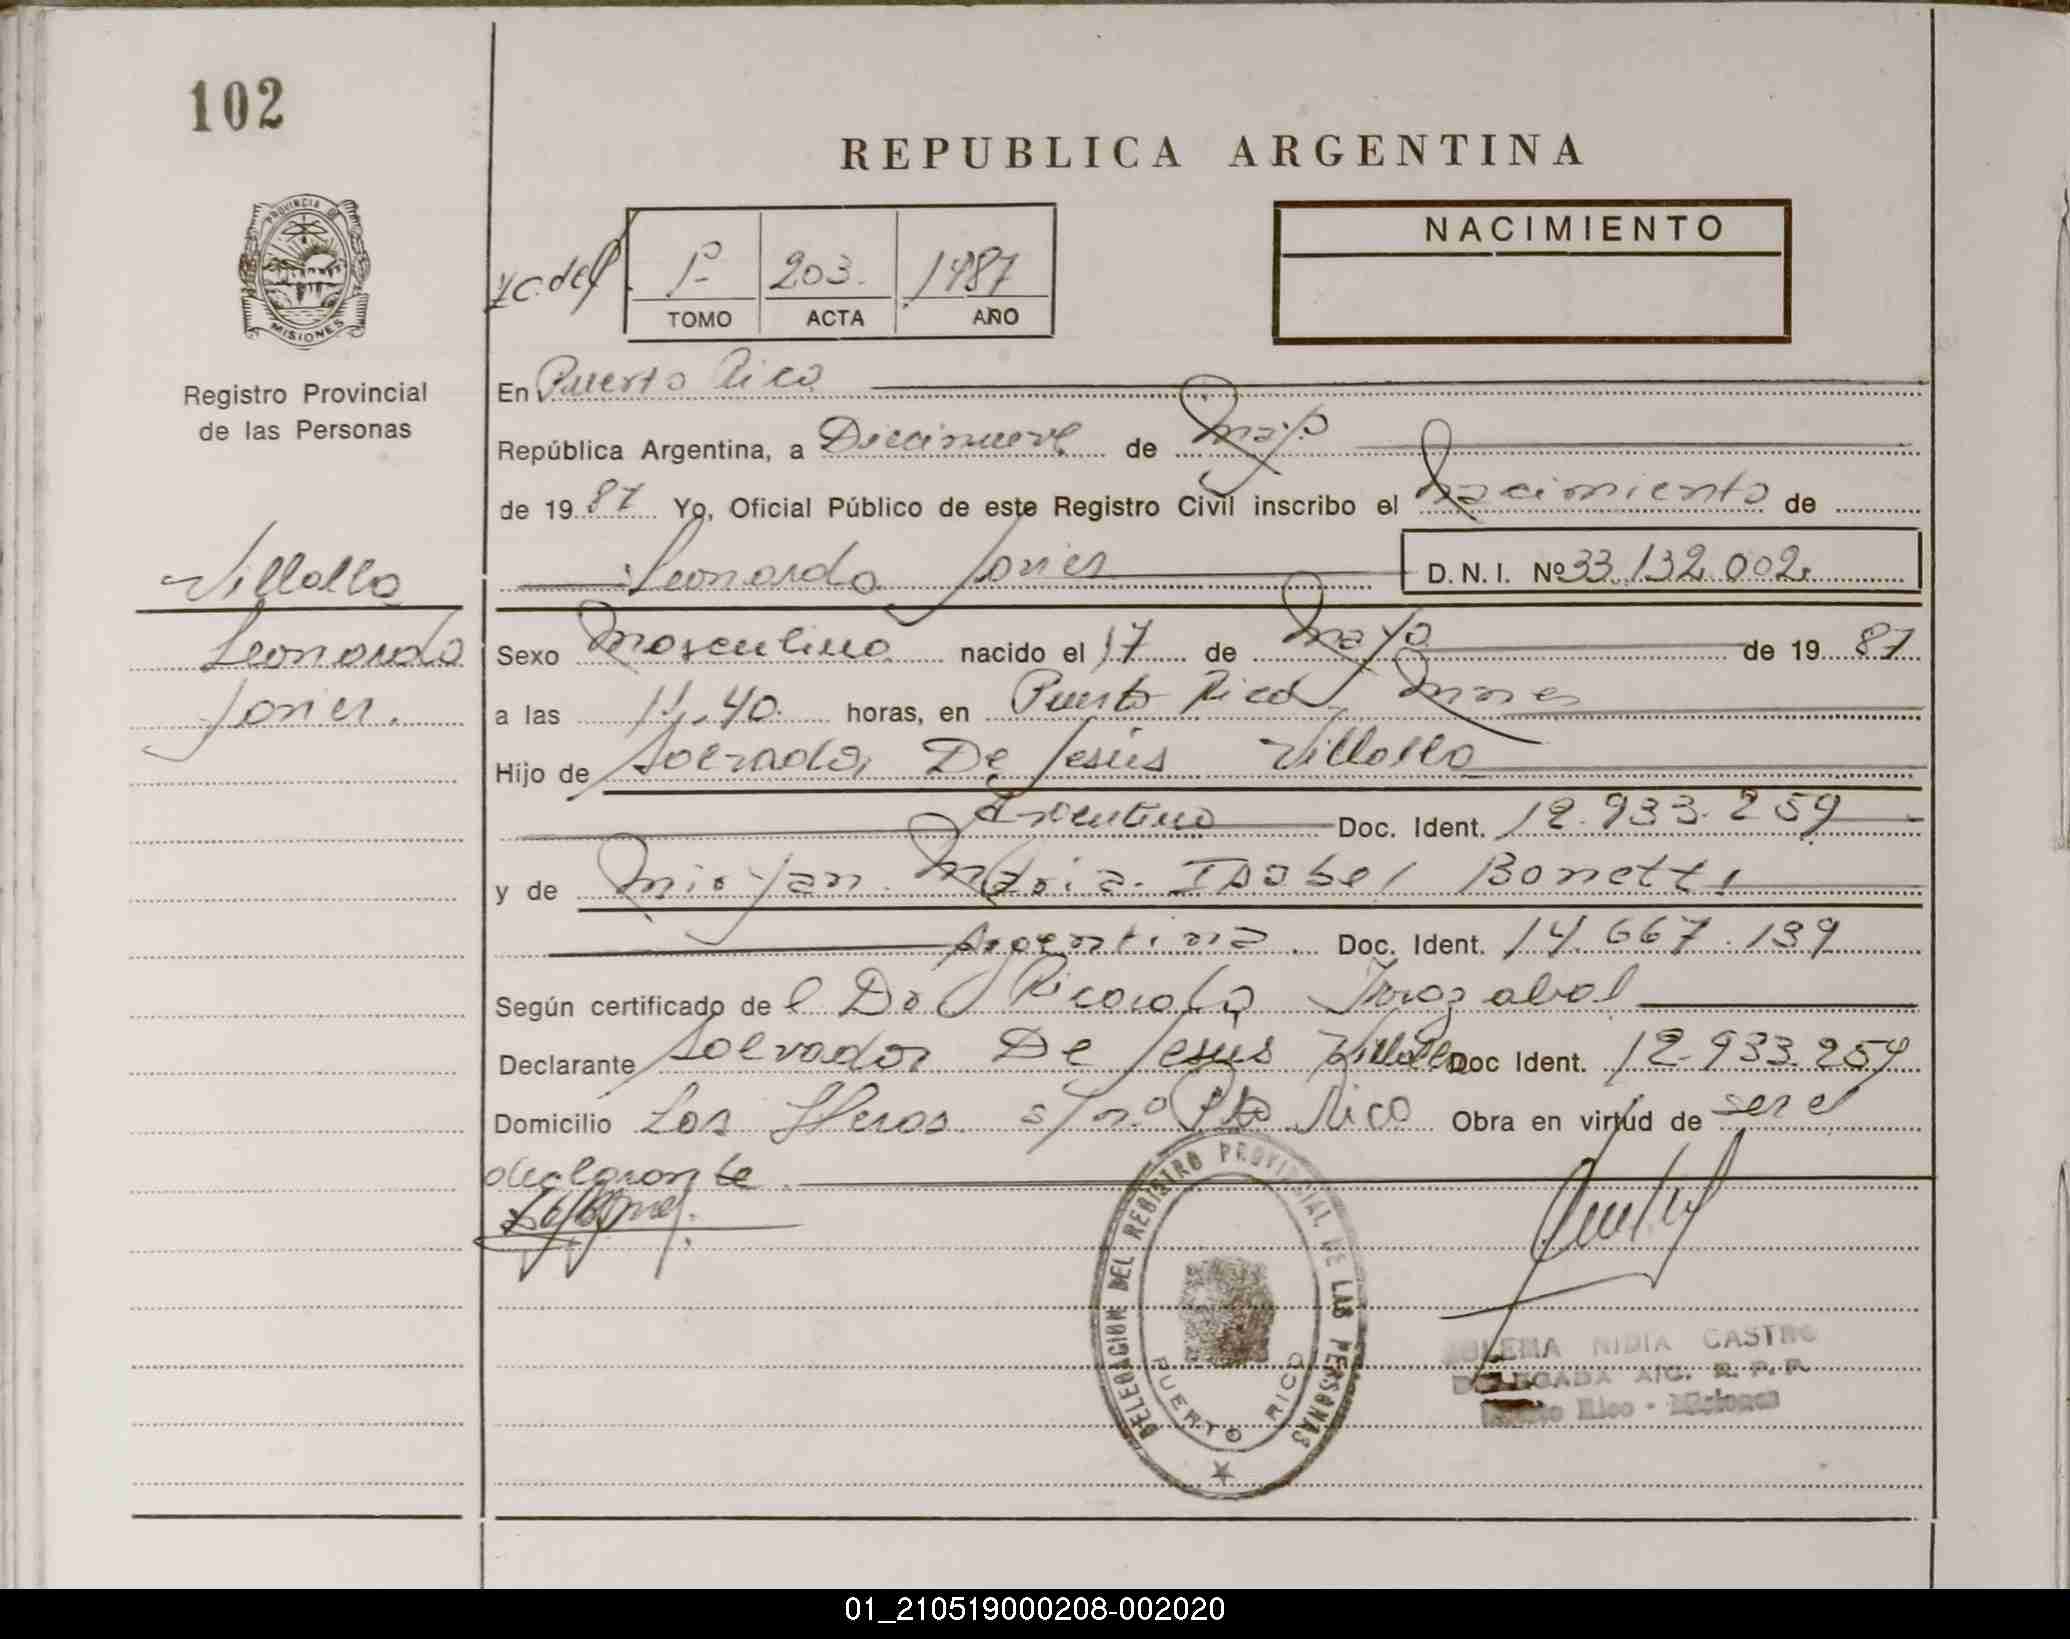 102
REPUBLICA ARGENTINA
PROVINCIA DE
MISIONES
Registro Provincial
de las Personas
NACIMIENTO
1º 203. 1987
TOMO ACTA AÑO
En Puerto Rico
República Argentina, a Diecinueve de Mayo
de 19 87 Yo, Oficial Público de este Registro Civil inscribo el Nacimiento de
Leonardo Javier D.N.I. Nº 33.132.002
Villalba
Leonardo
Javier.
Sexo Masculino nacido el 17 de Mayo de 19 87
a las 11,40 horas, en Puerto Rico, Mnes
Hijo de Salvador De Jesús Villalba
Argentino Doc. Ident. 12.933.259
y de Miryan Maria Isabel Bonetti
Argentina. Doc. Ident. 14.667.139
Según certificado de l Dr Ricardo Irrazabal
Declarante Salvador De Jesús Villalba Doc Ident. 12.933.259
Domicilio Los Heros s/nº Pto Rico Obra en virtud de ser el
declarante.
DELEGACION DEL REGISTRO PROVINCIAL DE LAS PERSONAS
PUERTO RICO
NIDIA CASTRO
DELEGADA A/C. R. P. P.
Puerto Rico - Misiones
01_210519000208-002020